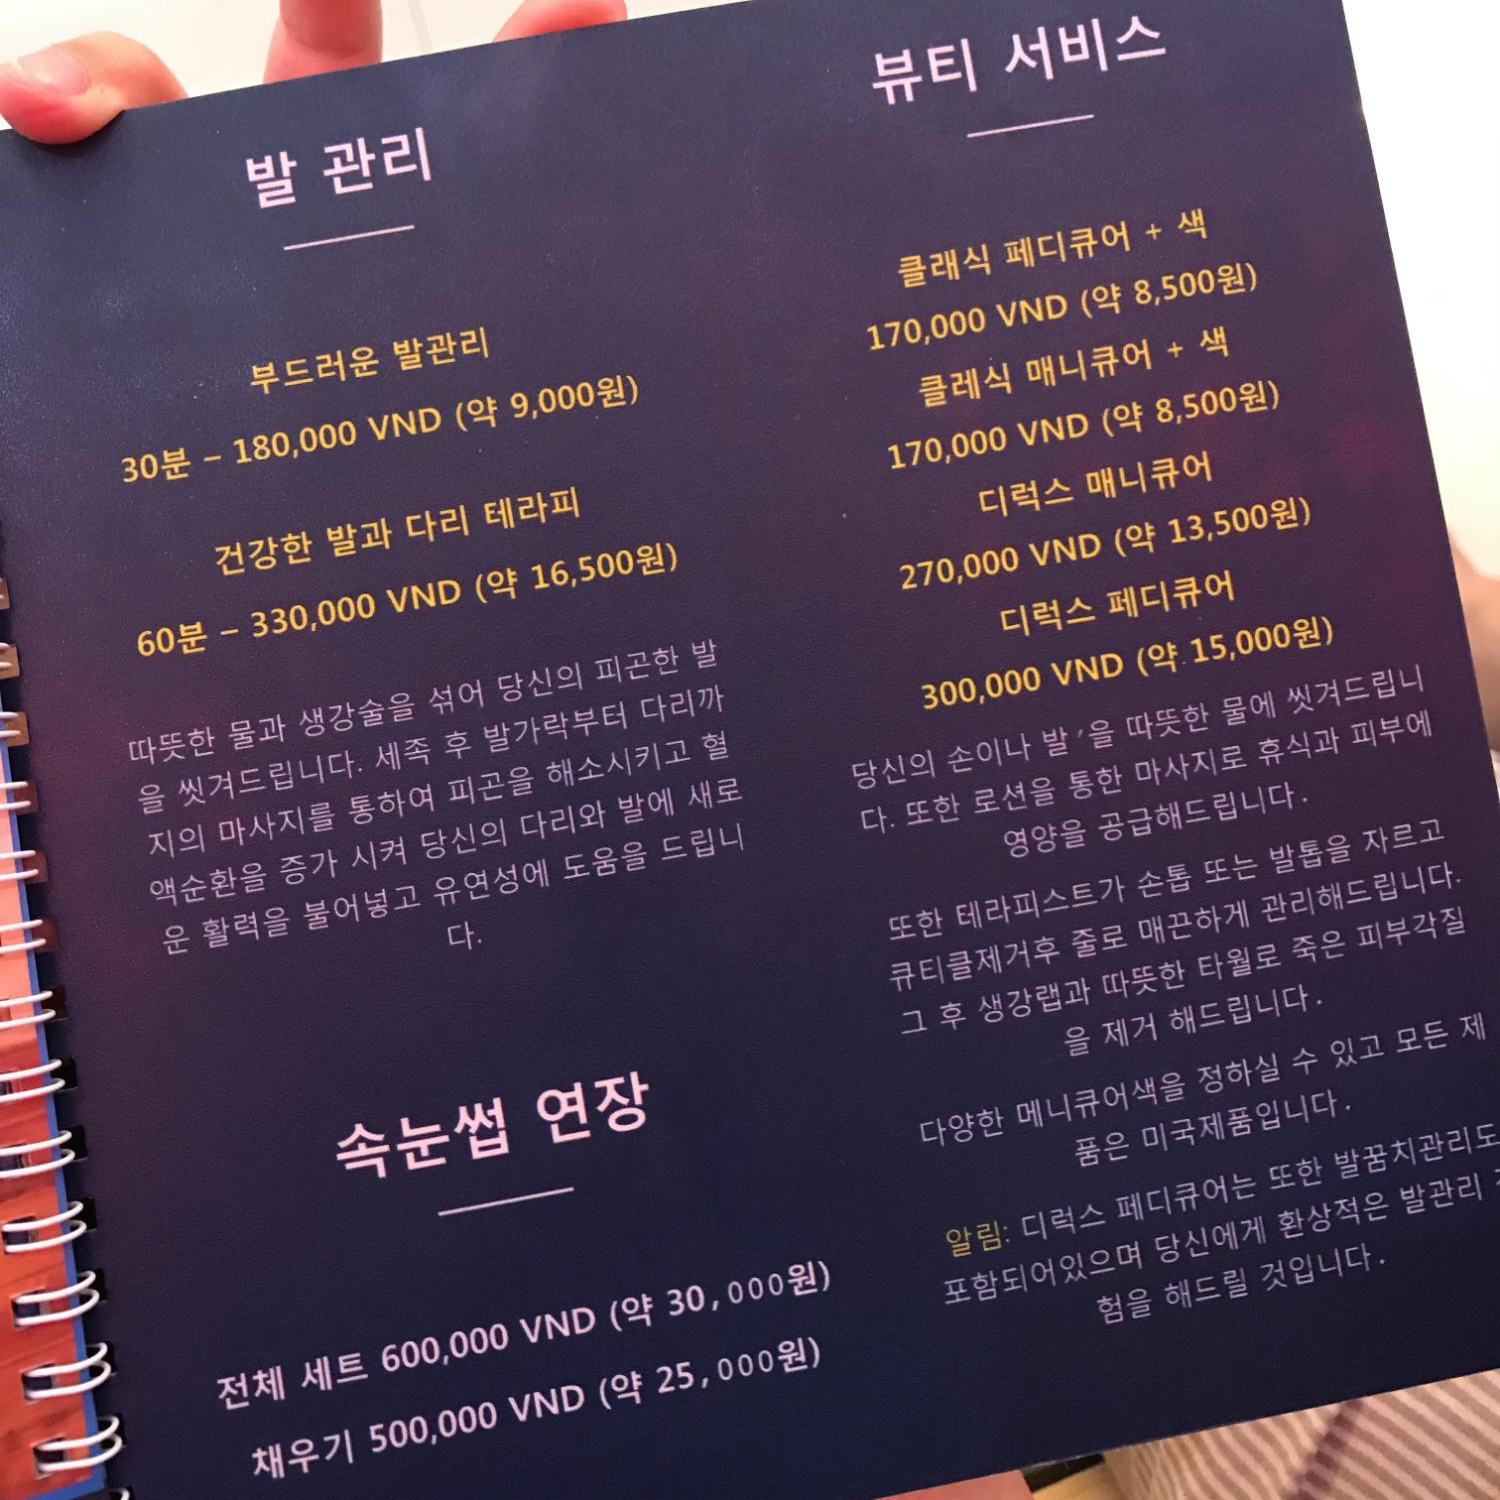 발 관리
부드러운 발관리
30분 – 180,000 VND (약 9,000원)
건강한 발과 다리 테라피
60분 – 330,000 VND (약 16,500원)
따뜻한 물과 생강술을 섞어 당신의 피곤한 발
을 씻겨드립니다. 세족 후 발가락부터 다리까
지의 마사지를 통하여 피곤을 해소시키고 혈
액순환을 증가 시켜 당신의 다리와 발에 새로
운 활력을 불어넣고 유연성에 도움을 드립니
다.
속눈썹 연장
전체 세트 600,000 VND (약 30,000원)
채우기 500,000 VND (약 25,000원)
뷰티 서비스
클래식 페디큐어 + 색
170,000 VND (약 8,500원)
클레식 매니큐어 + 색
170,000 VND (약 8,500원)
디럭스 매니큐어
270,000 VND (약 13,500원)
디럭스 페디큐어
300,000 VND (약 15,000원)
당신의 손이나 발’을 따뜻한 물에 씻겨드립니
다. 또한 로션을 통한 마사지로 휴식과 피부에
영양을 공급해드립니다.
또한 테라피스트가 손톱 또는 발톱을 자르고
큐티클제거후 줄로 매끈하게 관리해드립니다.
그 후 생강랩과 따뜻한 타월로 죽은 피부각질
을 제거 해드립니다.
다양한 메니큐어색을 정하실 수 있고 모든 제
품은 미국제품입니다.
알림: 디럭스 페디큐어는 또한 발꿈치관리도
포함되어있으며 당신에게 환상적은 발관리
험을 해드릴 것입니다.